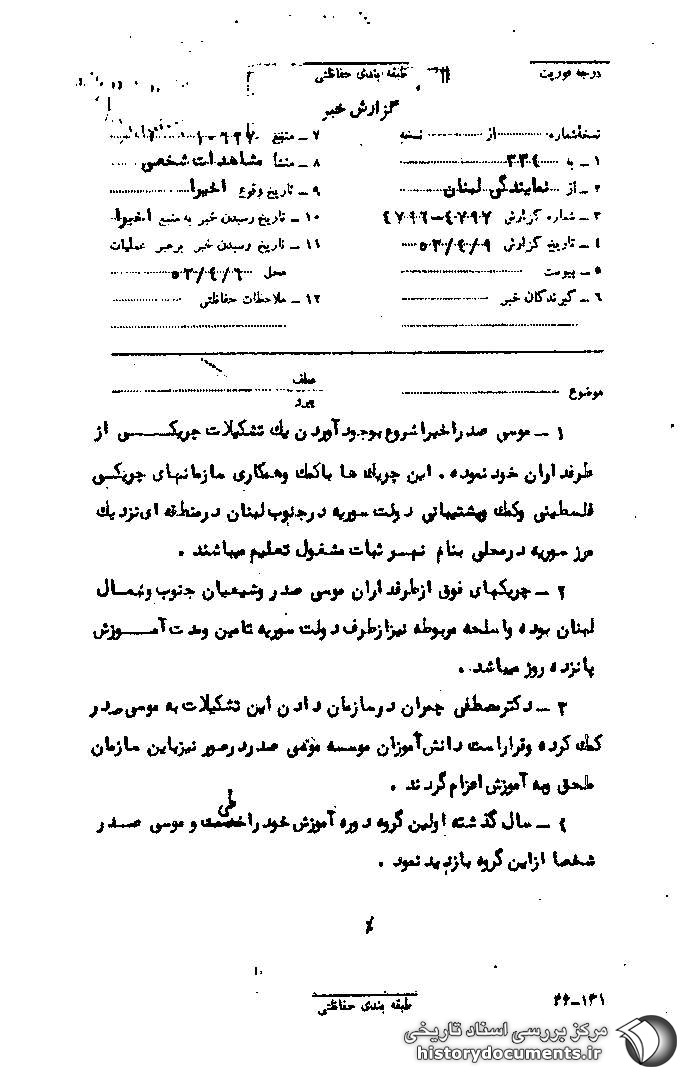 درجه فوریت
طبقه بندی حفاظتی
گزارش خبر
نسخه‌شماره ........ از ........ نسخه
۱ ـ به ۳۳٤
۲ ـ از نمایندگی لبنان
۳ ـ شماره گزارش ٤۷۹٦-٤۷۹۷
٤ ـ تاریخ گزارش ۵۳/٤/۹
۵ ـ پیوست
٦ ـ گیرندگان خبر
۷ ـ منبع
۸ ـ منشأ مشاهدات شخصی
۹ ـ تاریخ وقوع اخیرا
۱۰ ـ تاریخ رسیدن خبر به منبع اخیرا
۱۱ ـ تاریخ رسیدن خبر برهبر عملیات
محل ۵۳/٤/٦
۱۲ ـ ملاحظات حفاظتی
موضوع
عطف
پیرو
۱ ـ موسی صدر اخیرا شروع بوجود آوردن یک تشکیلات چریکی از
طرفداران خود نموده . این چریک ها باکمک وهمکاری سازمانهای چریکی
فلسطینی وکمک وپشتیبانی دولت سوریه درجنوب لبنان درمنطقه ای نزدیک
مرز سوریه درمحلی بنام نهسر ثبات مشغول تعلیم میباشند .
۲ ـ چریکهای فوق ازطرفداران موسی صدر وشیعیان جنوب وشمال
لبنان بوده واسلحه مربوطه نیزازطرف دولت سوریه تامین ومدت آموزش
پانزده روز میباشد .
۳ ـ دکترمصطفی چمران درسازمان دادن این تشکیلات به موسی صدر
کمک کرده وقراراست دانش آموزان موسسه موسی صدردرصور نیزباین سازمان
ملحق وبه آموزش اعزام گردند .
٤ ـ سال گذشته اولین گروه دوره آموزش خود را طی و موسی صدر
شخصا ازاین گروه بازدید نمود .
طبقه بندی حفاظتی
۲۶-۱۳۱
مرکز بررسی اسناد تاریخی
historydocuments.ir